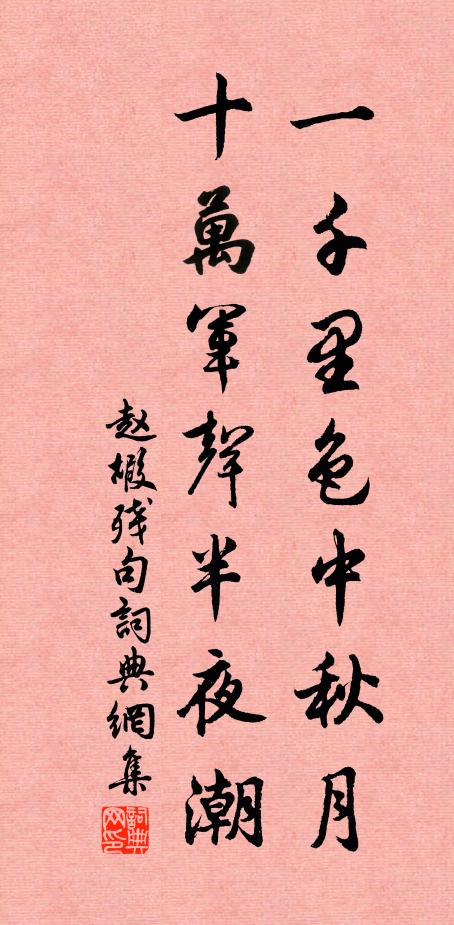 一千里色中秋月
十萬軍聲半夜潮
赵嘏残句詞典網集
詞典
网印